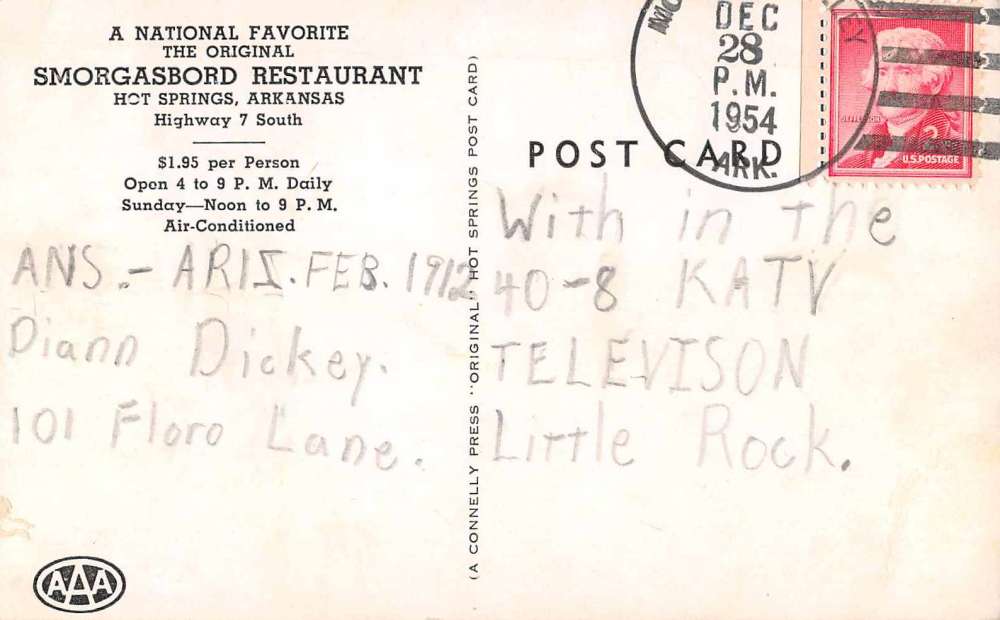 A NATIONAL FAVORITE
THE ORIGINAL
SMORGASBORD RESTAURANT
HOT SPRINGS, ARKANSAS
Highway 7 South
$1.95 per Person
Open 4 to 9 P. M. Daily
Sunday—Noon to 9 P. M.
Air-Conditioned
ANS. - ARIZ. FEB. 1912
Diann Dickey.
101 Floro Lane.
AAA
(A CONNELLY PRESS "ORIGINAL" HOT SPRINGS POST CARD)
DEC
28
P. M.
1954
ARK.
JEFFERSON
2¢
U.S. POSTAGE
POST CARD
With in the
40-8 KATV
TELEVISON
Little Rock.